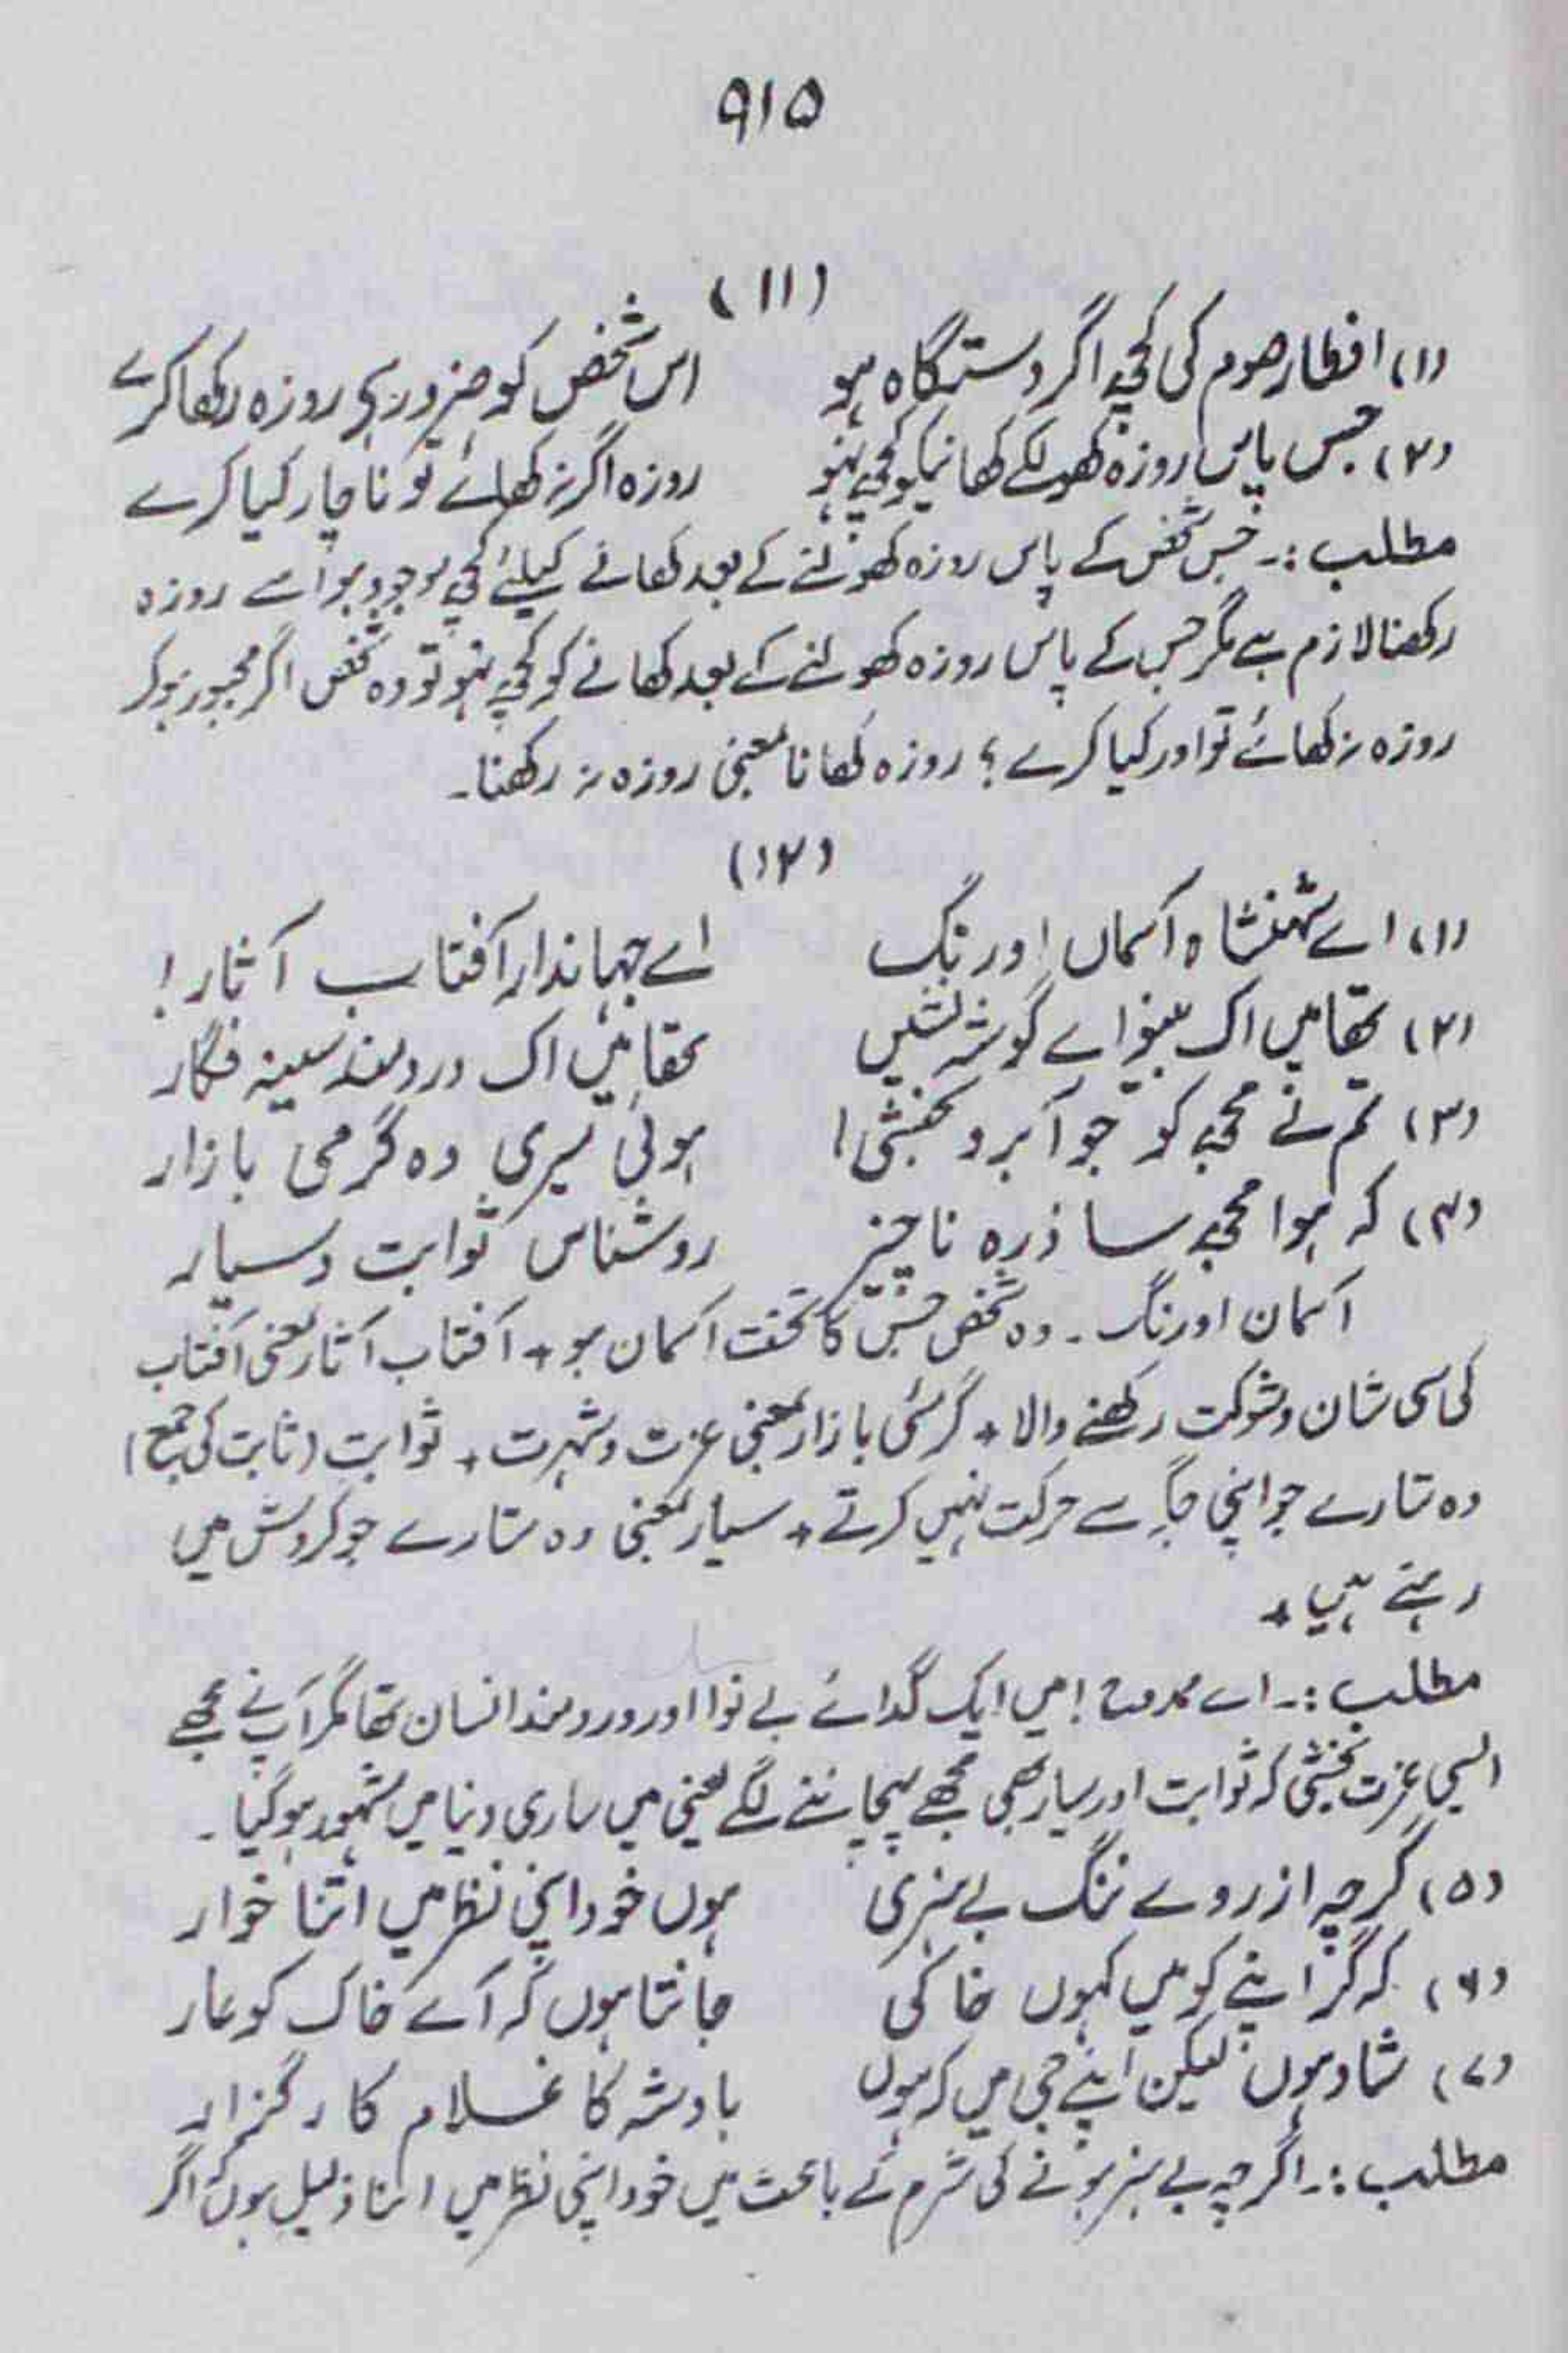 ۹۱۵
(۱۱)
(۱) افطار صوم کی کچھ اگر دستگاہ ہو اس شخص کو ضرور ہی روزہ رکھا کرے
(۲) جس پاس روزہ کھولکے کھانیکو کچھ نہو روزہ اگر نہ کھائے تو ناچار کیا کرے
مطلب :۔ جس شخص کے پاس روزہ کھولنے کے بعد کھانے کیلئے کچھ موجود ہو اسے روزہ
رکھنا لازم ہے مگر جس کے پاس روزہ کھولنے کے بعد کھانے کو کچھ نہو تو وہ شخص اگر مجبور ہو کر
روزہ نہ کھائے تو اور کیا کرے ؟ روزہ کھانا بمعنی روزہ نہ رکھنا۔
(۱۲)
(۱) اے شہنشاہ آسماں اورنگ اے جہاندار آفتاب آثار!
(۲) تھا میں اک بینوائے گوشہ نشیں تھا میں اک دردمند سینہ فگار
(۳) تم نے مجھ کو جو آبرو بخشی! ہوئی میری وہ گرمی بازار
(۴) کہ ہوا مجھ سا ذرہ ناچیز روشناس ثوابت و سیار
آسمان اورنگ ۔ وہ شخص جس کا تخت آسمان ہو + آفتاب آثار یعنی آفتاب
کی سی شان و شوکت رکھنے والا + گرمئی بازار بمعنی عزت و شہرت + ثوابت (ثابت کی جمع)
وہ ستارے جو اپنی جگہ سے حرکت نہیں کرتے + سیار بمعنی وہ ستارے جو گردش میں
رہتے ہیں +
مطلب :۔ اے ممدوح ! میں ایک گدائے بے نوا اور دردمند انسان تھا مگر آپ نے مجھے
ایسی عزت بخشی کہ ثوابت اور سیار بھی مجھے پہچاننے لگے یعنی میں ساری دنیا میں مشہور ہو گیا ۔
(۵) گرچہ از روے ننگ بے ہنری ہوں خود اپنی نظر میں اتنا خوار
(۶) کہ گر اپنے کو میں کہوں خاکی جانتا ہوں کہ آے خاک کو عار
(۷) شاد ہوں لیکن اپنے جی میں کہ ہوں بادشہ کا غلام کارگزار
مطلب :۔ اگرچہ بے ہنر ہونے کی شرم کے باعث میں خود اپنی نظر میں اتنا ذلیل ہوں کہ اگر